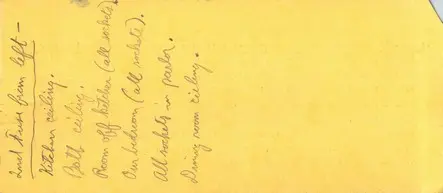 2nd Fuse from left –
Kitchen ceiling.
Bath ceiling.
Room off kitchen (all sockets)
Our bedroom (all sockets).
All sockets in parlor.
Dining room ceiling.